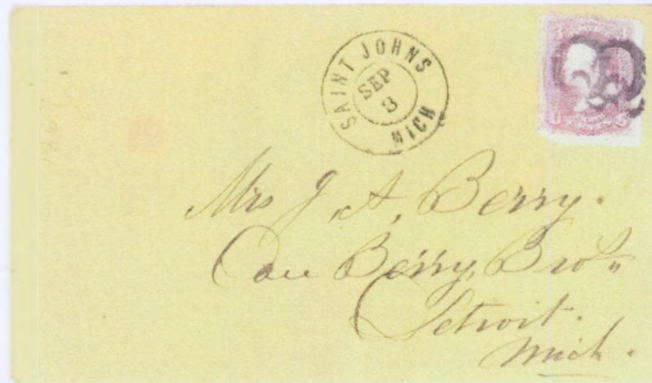 SAINT JOHNS
SEP
3
MICH
Mrs J. A. Berry.
Care Berry Bros
Detroit.
Mich.